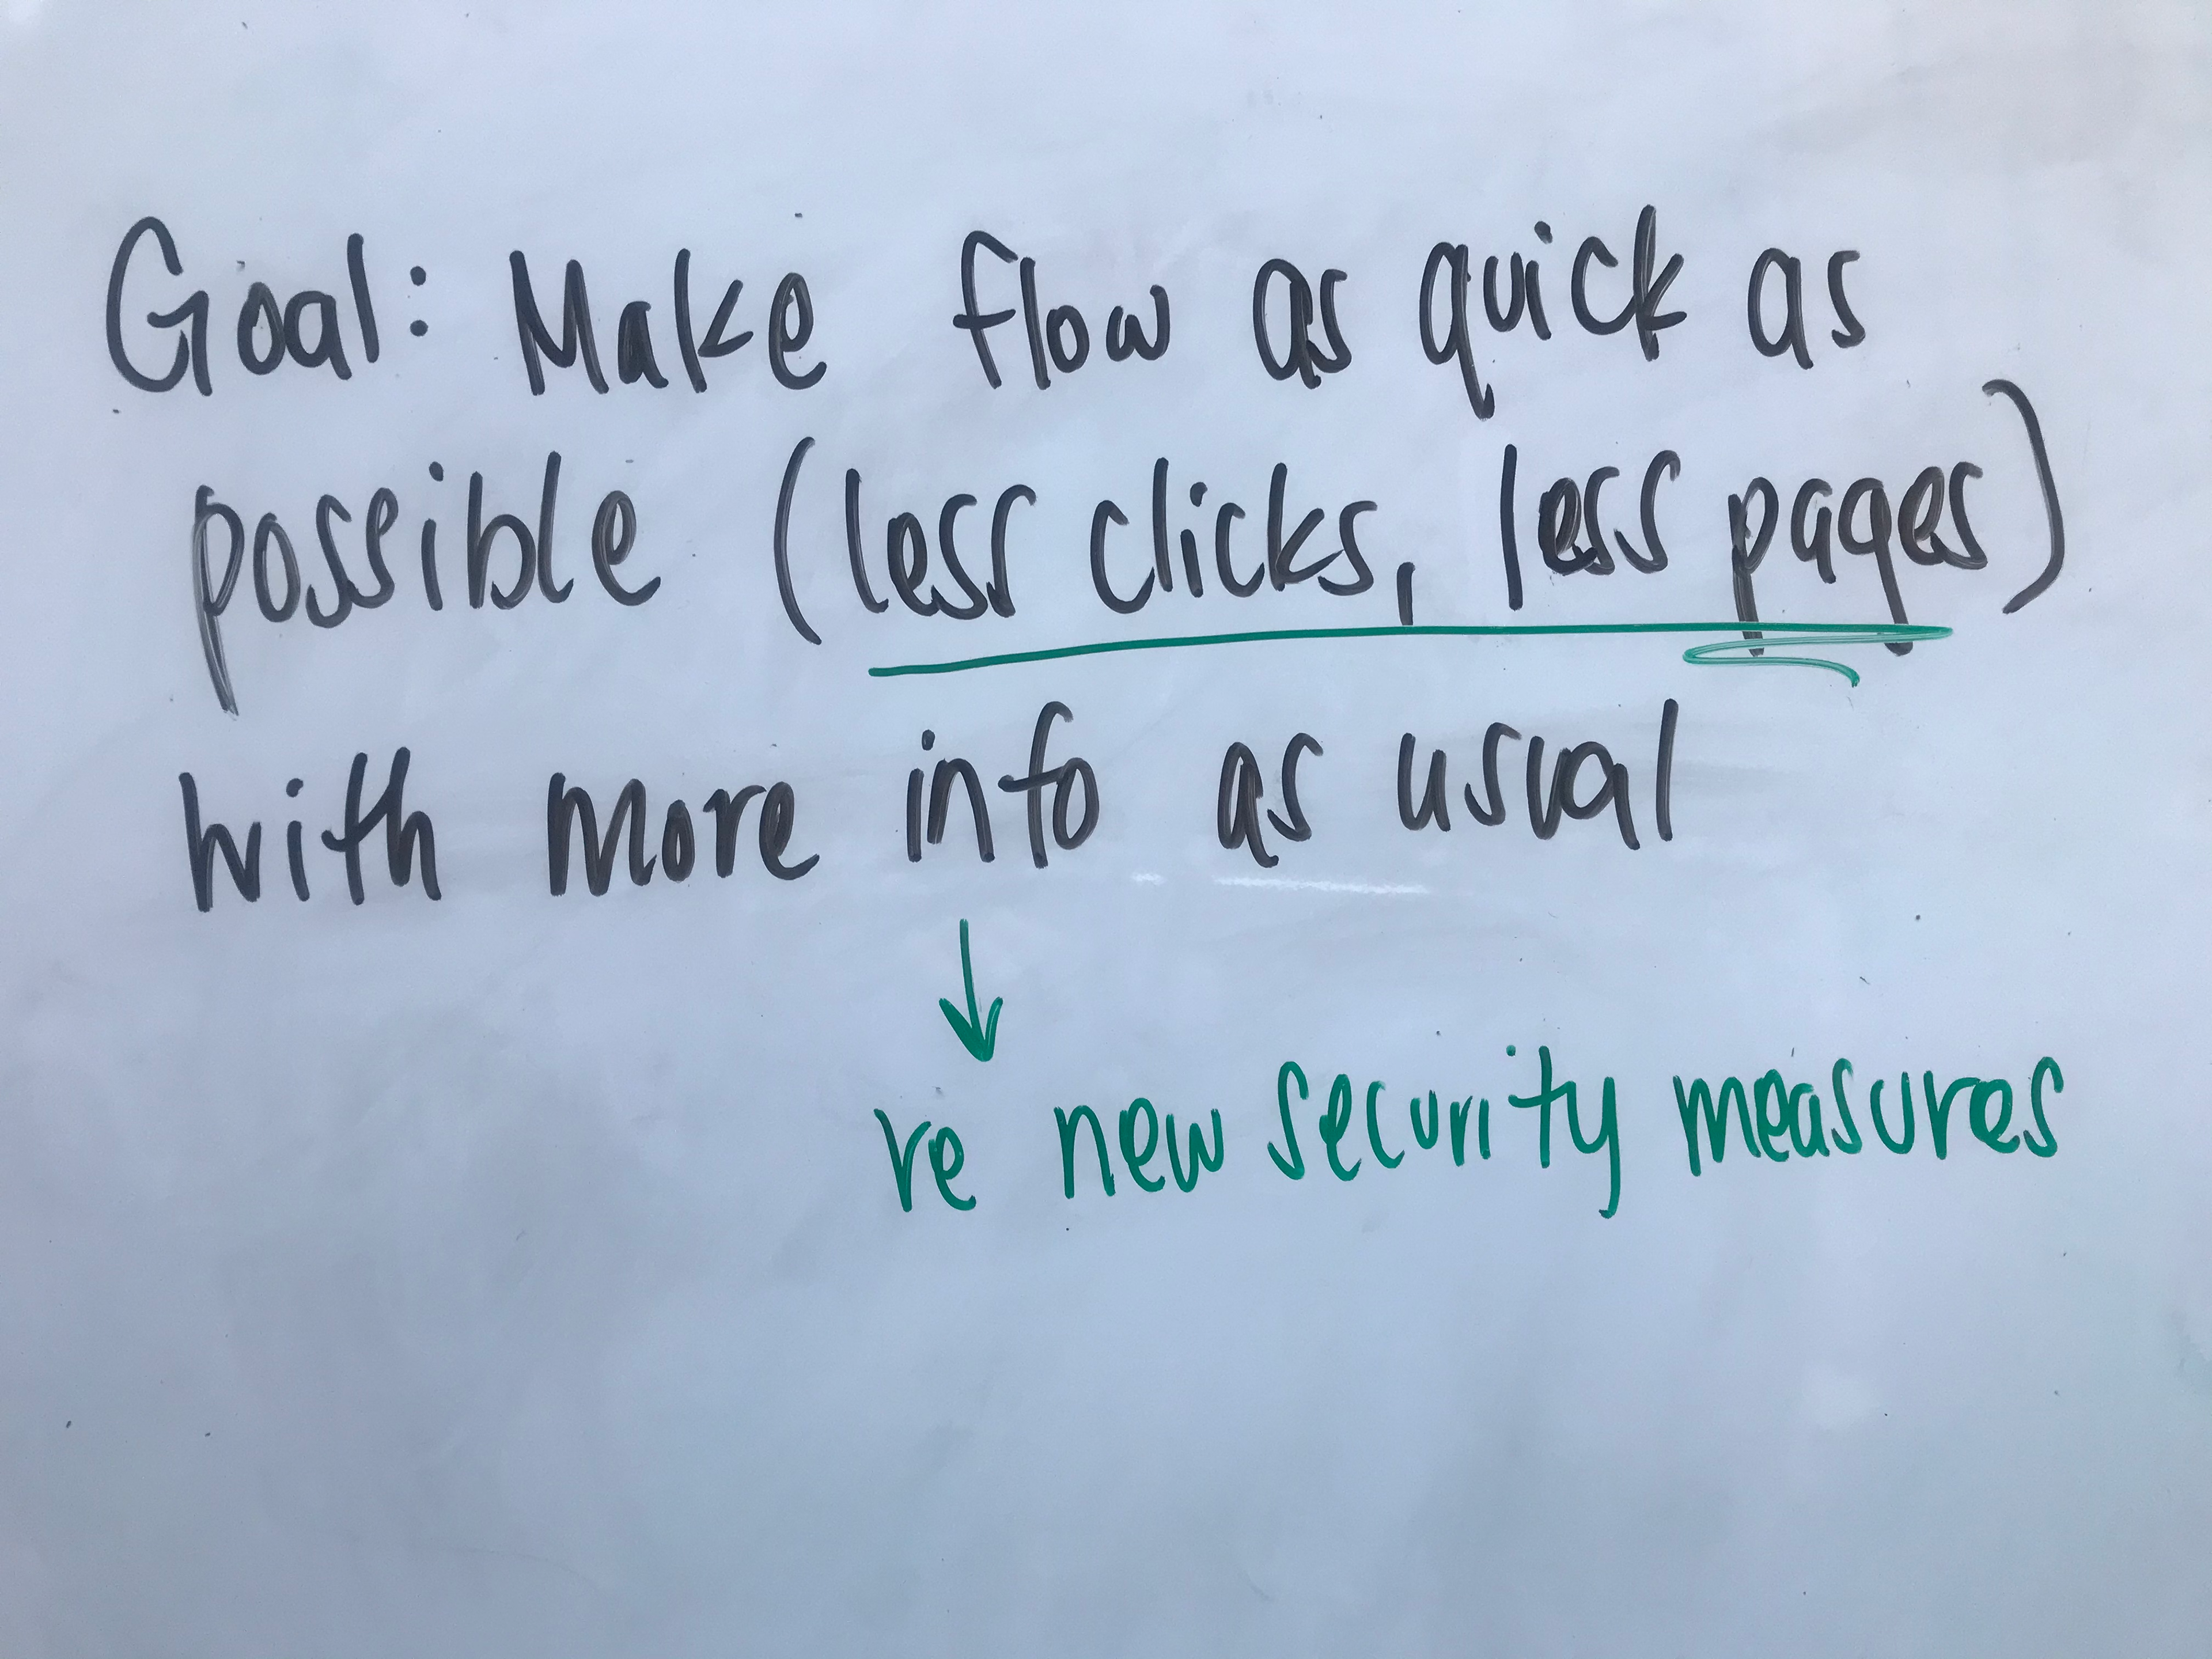 Goal: Make flow as quick as
possible (less clicks, less pages)
with more info as usual
re new security measures